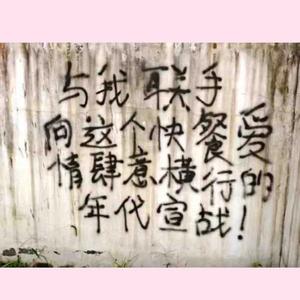 与我联手
向这个快餐爱
情肆意横行的
年代宣战！